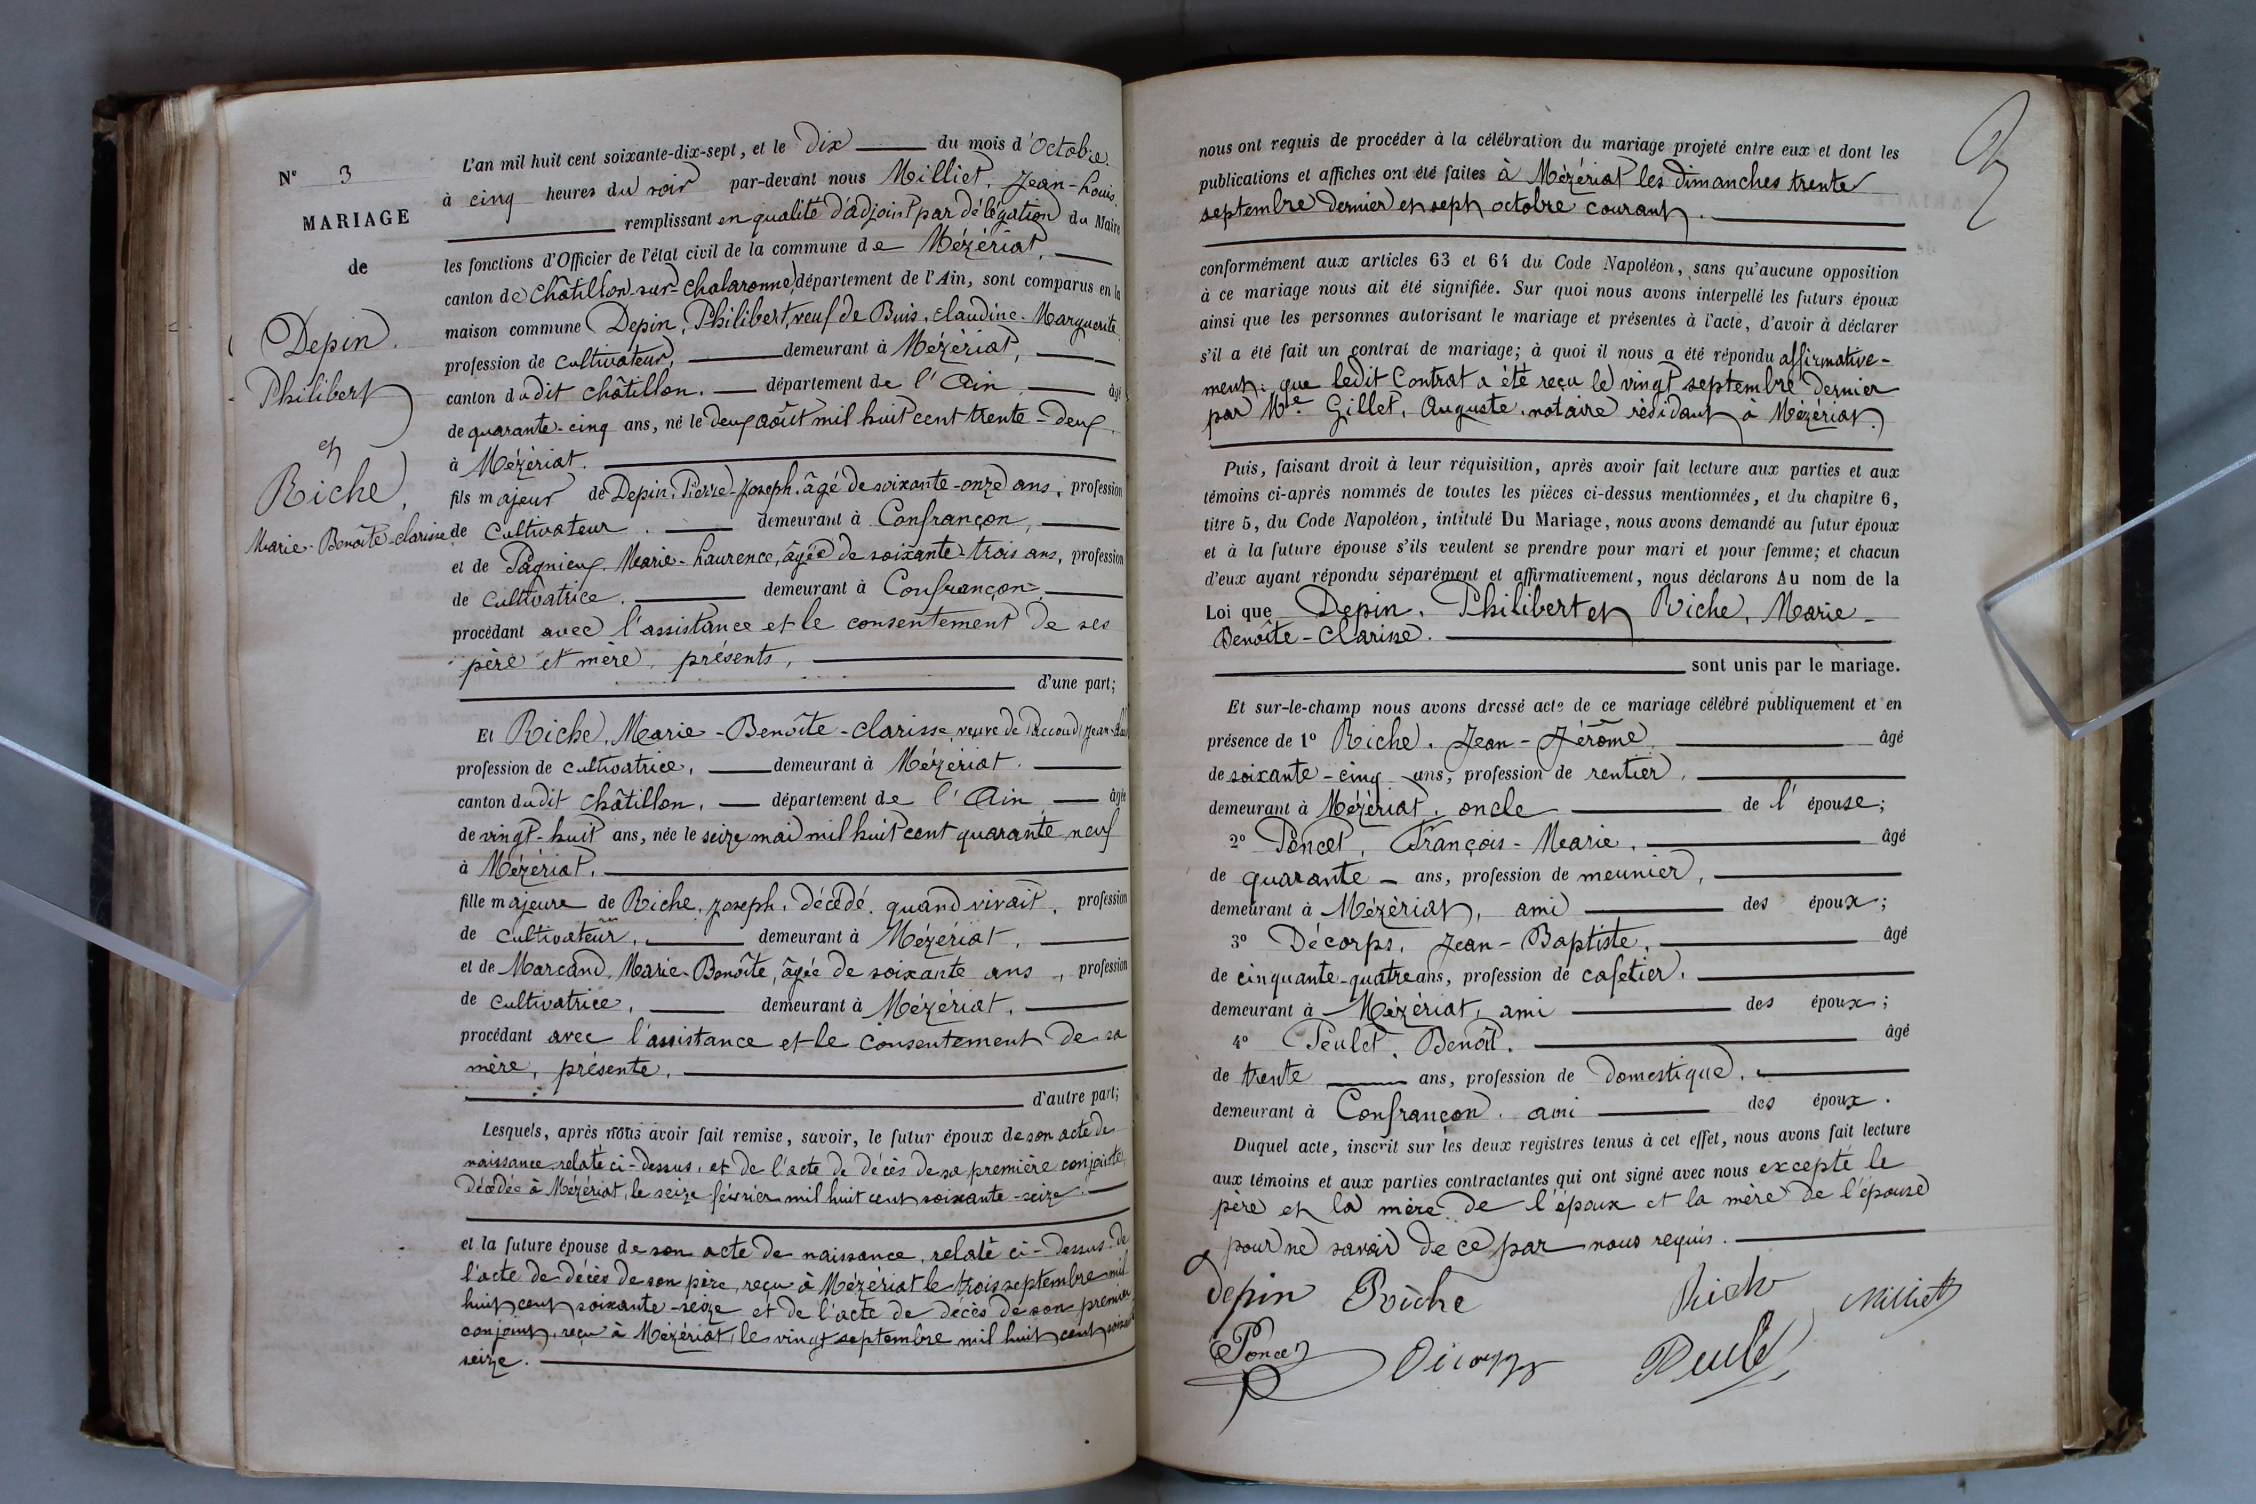 N° 3
MARIAGE
de
Depin.
Philibert
et
Riche,
Marie-Benoîte-clarisse
L'an mil huit cent soixante-dix-sept, et le dix du mois d'Octobre
à cinq heures du soir par-devant nous Milliet, Jean-Louis,
remplissant en qualité d'adjoint par délégation du Maire
les fonctions d'Officier de l'état civil de la commune de Mézériat,
canton de Châtillon-sur-Chalaronne, département de l'Ain, sont comparus en la
maison commune Depin, Philibert, veuf de Buis, claudine-Marguerite
profession de cultivateur, demeurant à Mézériat,
canton dudit châtillon. département de l'Ain âgé
de quarante-cinq ans, né le deux août mil huit cent trente-deux,
à Mézériat.
fils majeur de Depin, Pierre-Joseph, âgé de soixante-onze ans, profession
de cultivateur. demeurant à Confrançon,
et de Pagnieux, Marie-Laurence, âgée de soixante-trois ans, profession
de cultivatrice. demeurant à Confrançon,
procédant avec l'assistance et le consentement de ses
père et mère, présents,
d'une part;
Et Riche, Marie-Benoîte-clarisse, veuve de Paccoud, Jean-
profession de cultivatrice, demeurant à Mézériat.
canton dudit châtillon, département de l'Ain âgée
de vingt-huit ans, née le seize mai mil huit cent quarante neuf
à Mézériat.
fille majeure de Riche, Joseph, décédé, quand vivait, profession
de cultivateur, demeurant à Mézériat,
et de Marcand, Marie-Benoîte, âgée de soixante ans, profession
de cultivatrice, demeurant à Mézériat,
procédant avec l'assistance et le consentement de sa
mère, présente,
d'autre part;
Lesquels, après nous avoir fait remise, savoir, le futur époux de son acte de
naissance relaté ci-dessus, et de l'acte de décès de sa première conjointe,
décédée à Mézériat, le seize février mil huit cent soixante-seize.
et la future épouse de son acte de naissance, relaté ci-dessus, de
l'acte de décès de son père, reçu à Mézériat le trois septembre mil
huit cent soixante-seize et de l'acte de décès de son premier
conjoint, reçu à Mézériat, le vingt septembre mil huit cent soixante
seize.
nous ont requis de procéder à la célébration du mariage projeté entre eux et dont les
publications et affiches ont été faites à Mézériat les dimanches trente
septembre dernier et sept octobre courant.
conformément aux articles 63 et 64 du Code Napoléon, sans qu'aucune opposition
à ce mariage nous ait été signifiée. Sur quoi nous avons interpellé les futurs époux
ainsi que les personnes autorisant le mariage et présentes à l'acte, d'avoir à déclarer
s'il a été fait un contrat de mariage; à quoi il nous a été répondu affirmative-
ment: que ledit Contrat a été reçu le vingt septembre dernier
par Me. Gillet, Auguste, notaire résidant à Mézériat.
Puis, faisant droit à leur réquisition, après avoir fait lecture aux parties et aux
témoins ci-après nommés de toutes les pièces ci-dessus mentionnées, et du chapitre 6,
titre 5, du Code Napoléon, intitulé Du Mariage, nous avons demandé au futur époux
et à la future épouse s'ils veulent se prendre pour mari et pour femme; et chacun
d'eux ayant répondu séparément et affirmativement, nous déclarons Au nom de la
Loi que Depin, Philibert et Riche, Marie-
Benoîte-Clarisse.
sont unis par le mariage.
Et sur-le-champ nous avons dressé acte de ce mariage célébré publiquement et en
présence de 1° Riche, Jean-Jérôme, âgé
de soixante-cinq ans, profession de rentier,
demeurant à Mézériat, oncle de l'épouse;
2° Poncet, François-Marie, âgé
de quarante ans, profession de meunier,
demeurant à Mézériat, ami des époux;
3° Décorps, Jean-Baptiste, âgé
de cinquante-quatre ans, profession de cafetier,
demeurant à Mézériat, ami des époux;
4° Peulet, Benoît. âgé
de trente ans, profession de domestique,
demeurant à Confrançon. ami des époux.
Duquel acte, inscrit sur les deux registres tenus à cet effet, nous avons fait lecture
aux témoins et aux parties contractantes qui ont signé avec nous excepté le
père et la mère de l'époux et la mère de l'épouse
pour ne savoir de ce par nous requis.
depin Riche Riche Milliet
Poncet Décorps Peulet